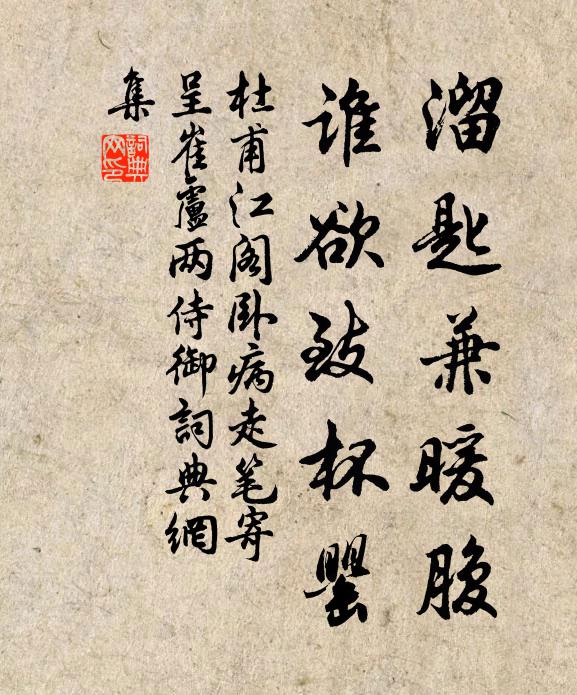 溜匙兼暖腹
谁欲致杯罂
杜甫江阁卧病走笔寄
呈崔盧两侍御詞典網
集
詞典网印